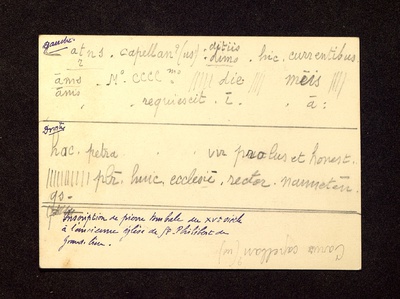 Gauche.
atns. capellan9 (us) . ditiis
. dumo . hic. currentibus
āms Nº CCCC mo ///// die //// mēis ////
āmis
. requiescit . ī. . ā :
Droite
hac. petra vir probus et honest.
///////// pbr. huic ecclesie. rector. nannetēn
Inscription de pierre tombale du XVe siècle
à l'ancienne église de St. Philibert de
Grand lieu.
capellan9 (us)